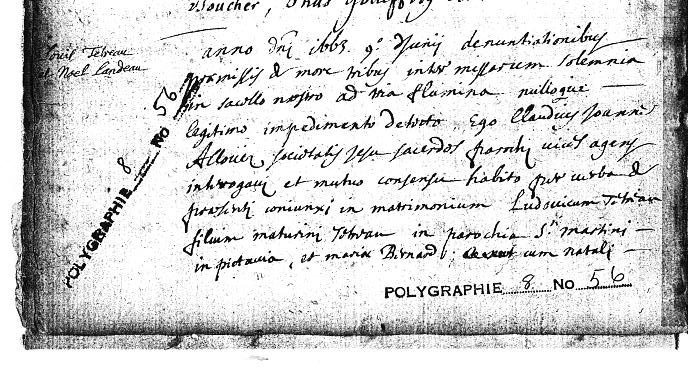 anno Dni 1663. 9° Junij denuntiationibus
Louis Tetreau
et Noel Landeau
praemissis de more tribus inter missarum solemnia
in sacello nostro ad tria flumina nulloque
legitimo impedimento detecto Ego Claudius Joannes
Allouez societatis Jesu sacerdos parochi vices agens
interrogavi et mutuo consensu habito per verba de
praesenti coniunxi in matrimonium Ludovicum Tetreau
filium maturini Tetreau in parochia Sti martini
in pictavia, et mariae Bernard; cum natali
POLYGRAPHIE 8 No 56
POLYGRAPHIE 8 No 56